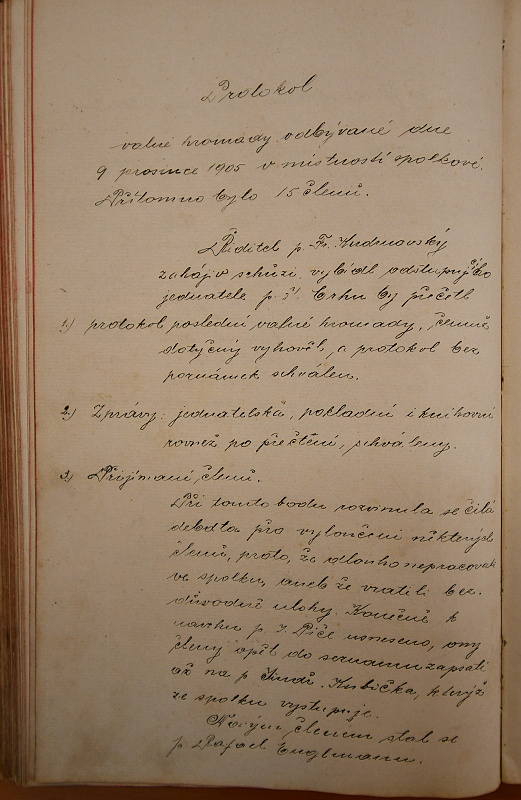 Protokol
valné hromady odbývané dne
9 prosince 1905 v místnosti spolkové.
Přítomno bylo 15 členů.
Ředitel p. Fr.
zahájiv schůzi, vybídl odstupujícího
jednatele p. by přečetl
1) protokol poslední valné hromady, čemuž
dotyčný vyhověl, a protokol bez
poznámek schválen.
2) Zprávy: jednatelská, pokladní i knihovní
rovněž po přečtení, schváleny.
3) Přijímaní členů.
Při tomto bodu rozvinula se čilá
debata pro vyloučení některých
členů, proto, že dlouho nepracovali
ve spolku, aneb že vrátili bez-
důvodně úlohy. Konečně k
návrhu p. J. Píče usneseno, ony
členy opět do seznamu zapsati
až na p. Jindř. Kubíčka, kterýž
ze spolku vystupuje.
Novým členem stal se
p. Rafael Englmann.